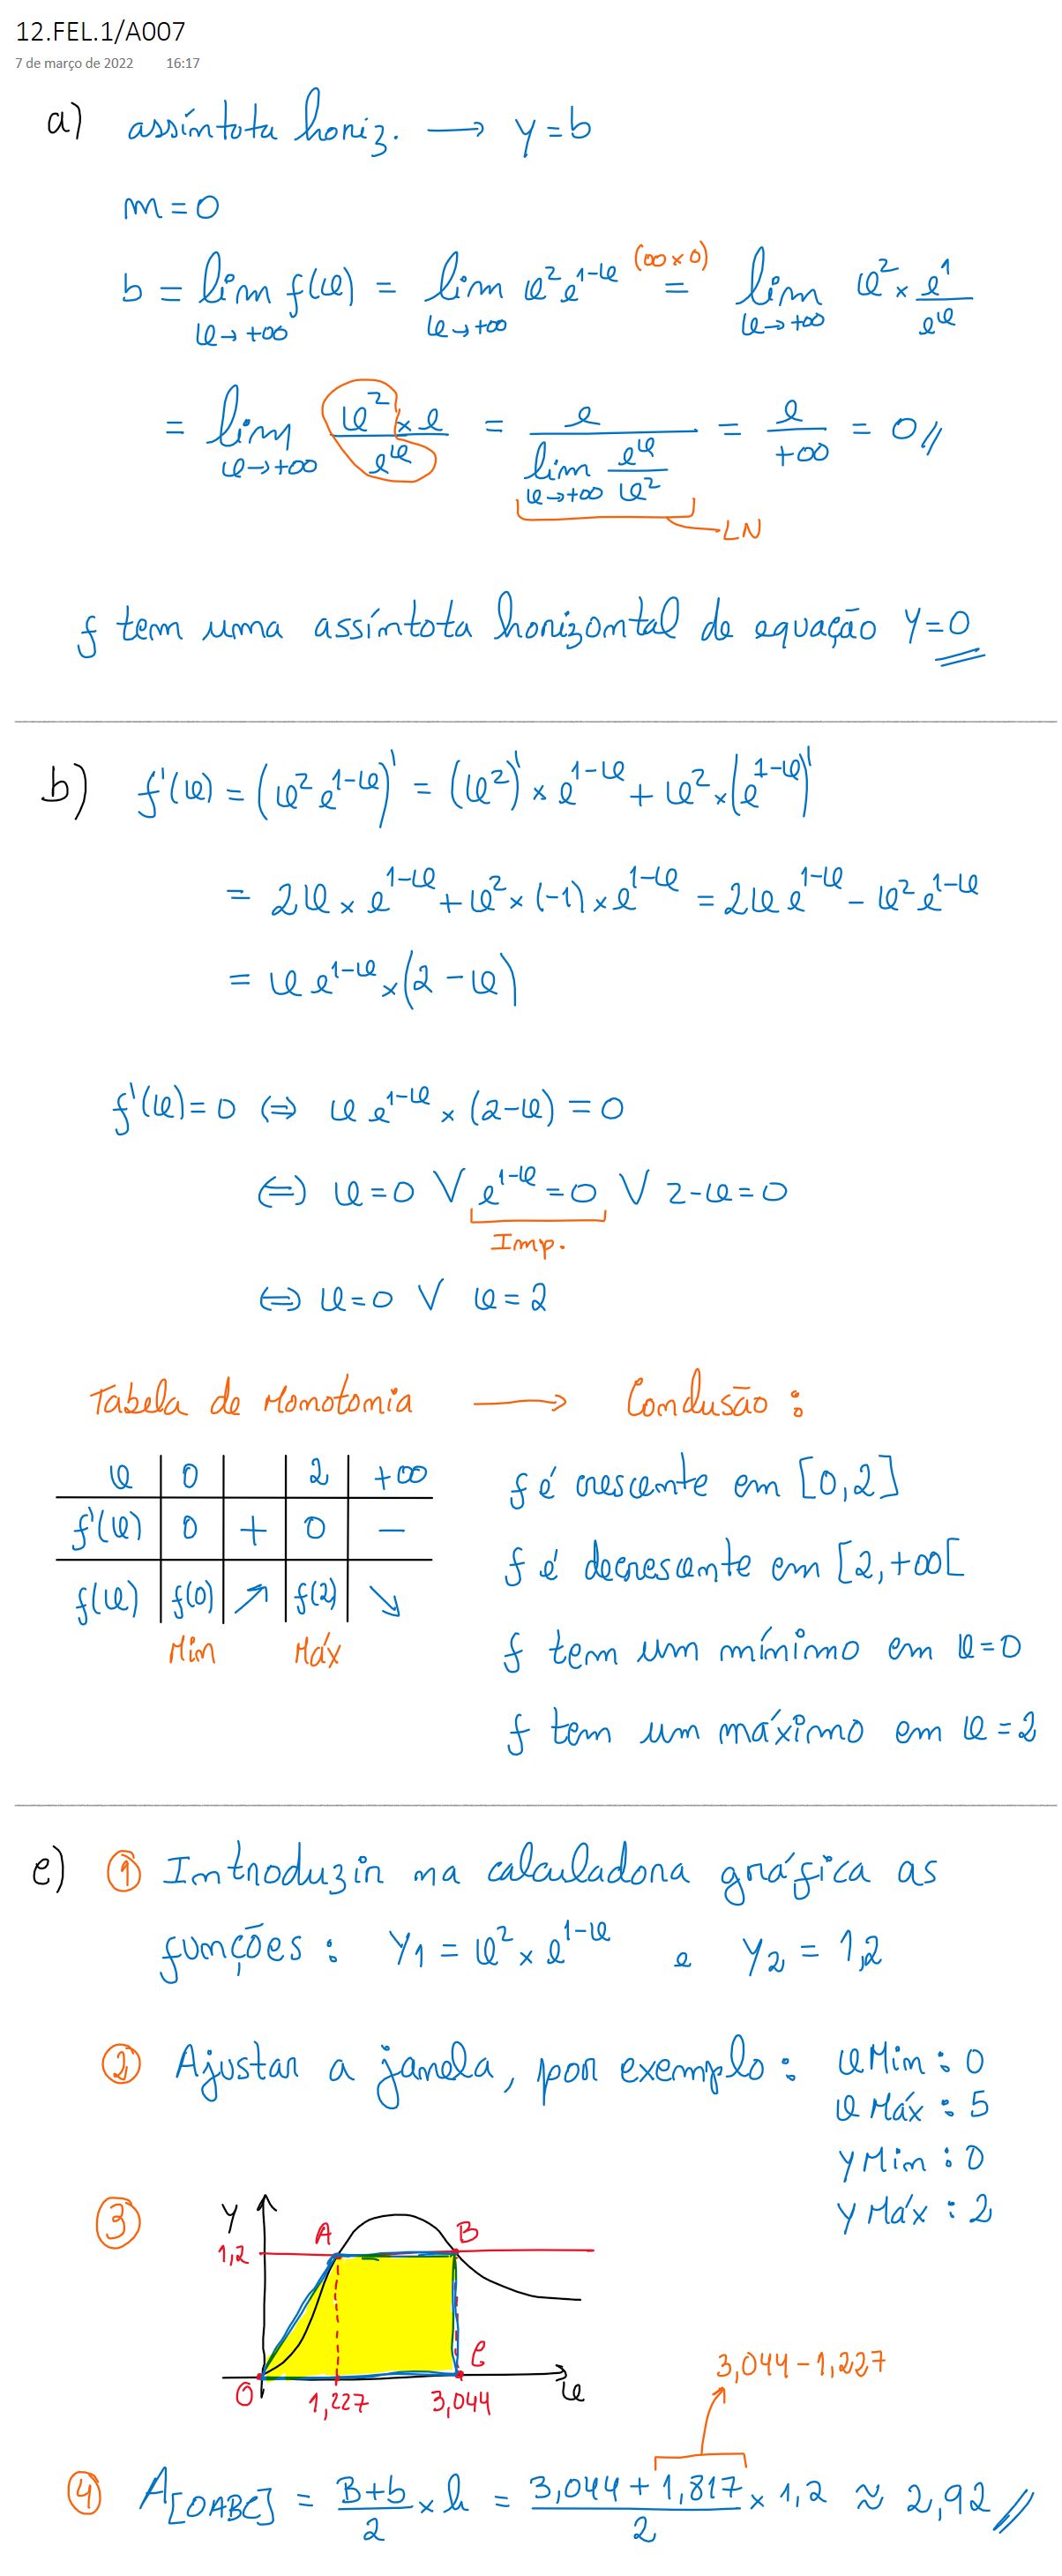 12.FEL.1/A007
7 de março de 2022 16:17
a) assíntota horiz. ⟶ y = b
m = 0
b = lim x→+∞ f(x) = lim x→+∞ x² e^(1-x) (∞×0) = lim x→+∞ x² × e¹/e^x
= lim x→+∞ (x² × e)/e^x = e/(lim x→+∞ e^x/x²) = e/+∞ = 0//
LN
f tem uma assíntota horizontal de equação y = 0
b) f'(x) = (x² e^(1-x))' = (x²)' × e^(1-x) + x² × (e^(1-x))'
= 2x × e^(1-x) + x² × (-1) × e^(1-x) = 2x e^(1-x) - x² e^(1-x)
= x e^(1-x) × (2 - x)
f'(x) = 0 ⇔ x e^(1-x) × (2-x) = 0
⇔ x = 0 ∨ e^(1-x) = 0 ∨ 2-x = 0
Imp.
⇔ x = 0 ∨ x = 2
Tabela de Monotonia ⟶ Conclusão :
x 0 2 +∞
f'(x) 0 + 0 -
f(x) f(0) ↗ f(2) ↘
Min Máx
f é crescente em [0,2]
f é decrescente em [2,+∞[
f tem um mínimo em x = 0
f tem um máximo em x = 2
c) 1 Introduzir na calculadora gráfica as
funções : y₁ = x² × e^(1-x) e y₂ = 1,2
2 Ajustar a janela, por exemplo : x Min : 0
x Máx : 5
y Min : 0
y Máx : 2
3
y
A B
1,2
C
O 1,227 3,044 x
3,044 - 1,227
4 A[OABC] = (B+b)/2 × h = (3,044 + 1,817)/2 × 1,2 ≈ 2,92//